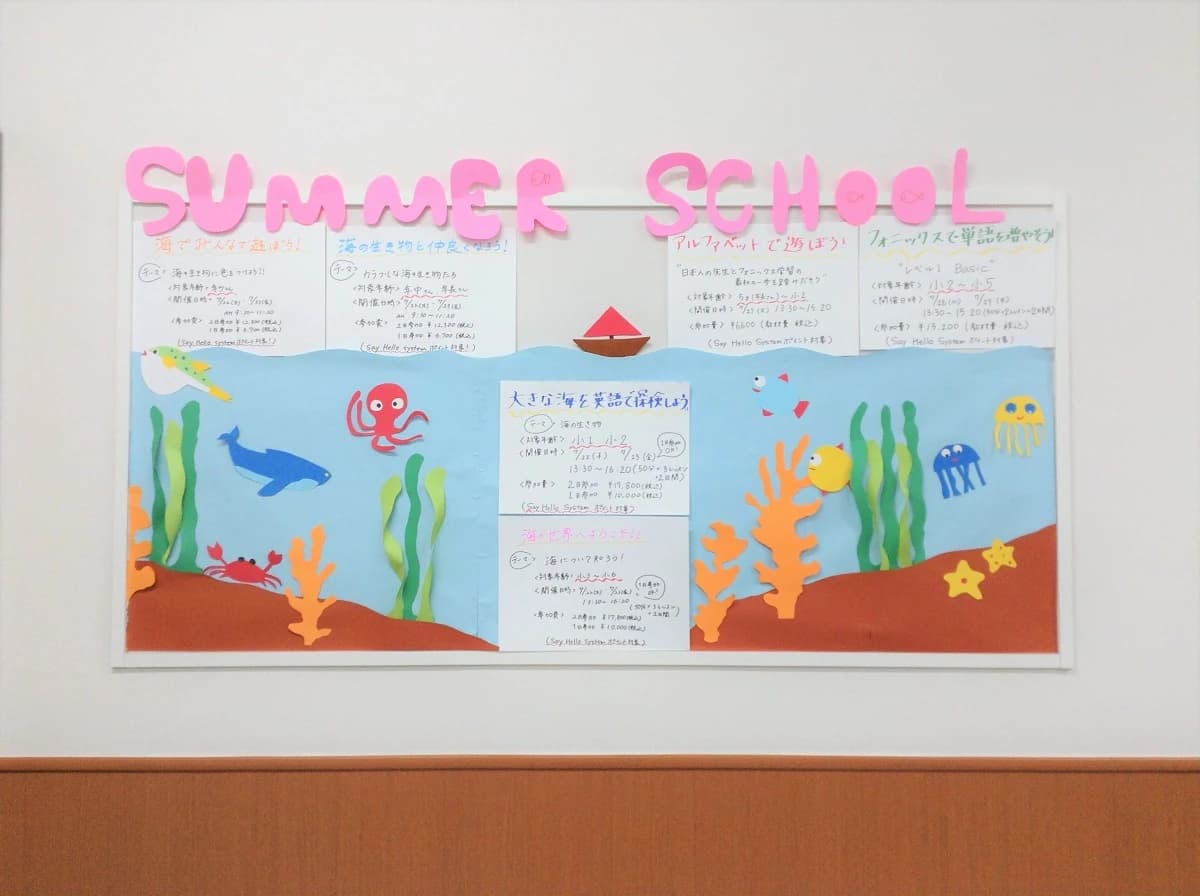 SUMMER SCHOOL
海でみんなで遊ぼう!
テーマ 海の生き物に色をつけよう!!
<対象年齢> 年少さん
<開催日時>
AM 9:30~11:20
<参加費> 2日参加 ¥12,300(税込)
1日参加 ¥6,700(税込)
(Say Hello System ポイント対象!)
海の生き物と仲良くなろう!
テーマ カラフルな海の生き物たち
<対象年齢> 年中さん 年長さん
<開催日時>
AM 9:30~11:20
<参加費> 2日参加 ¥12,300(税込)
1日参加 ¥6,700(税込)
(Say Hello System ポイント対象!)
大きな海を英語で探検しよう
テーマ 海の生き物
<対象年齢> 小1 小2
<開催日時> 7/22(木) 7/23(金)
1日参加OK!
13:30~16:20(50分×3レッスン×2日間)
<参加費> 2日参加 ¥17,800(税込)
1日参加 ¥10,000(税込)
(Say Hello System ポイント対象)
海の世界へようこそ!!
テーマ 海について知ろう!
<対象年齢> 小3~小6
<開催日時>
1日参加OK!
13:30~16:20
(50分×3レッスン×2日間)
<参加費> 2日参加 ¥17,800(税込)
1日参加 ¥10,000(税込)
(Say Hello System ポイント対象)
アルファベットで遊ぼう!
"日本人の先生とフォニックス学習の
最初の一歩を踏みだそう"
<対象年齢> 5才(年長さん)~小2
<開催日時> 7/27(火) 13:30~15:20
<参加費> ¥6600(教材費 税込)
(Say Hello System ポイント対象)
フォニックスで単語を増やそう!
"レベル1 Basic"
<対象年齢> 小2~小5
<開催日時> 7/28(水) 7/29(木)
13:30~15:20(50分×2レッスン×2日間)
<参加費> ¥13,200(教材費 税込)
(Say Hello System ポイント対象)